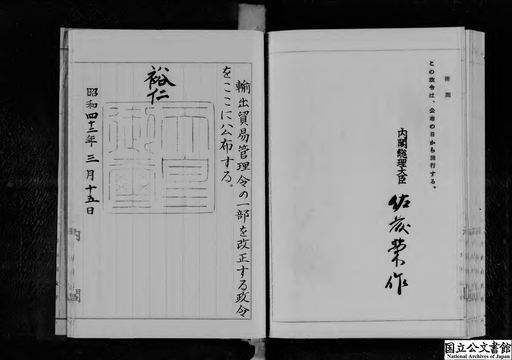 附則
この政令は、公布の日から施行する。
内閣総理大臣
佐藤栄作
輸出貿易管理令の一部を改正する政令
をここに公布する。
裕仁
天皇御璽
昭和四十三年三月十五日
国立公文書館
National Archives of Japan